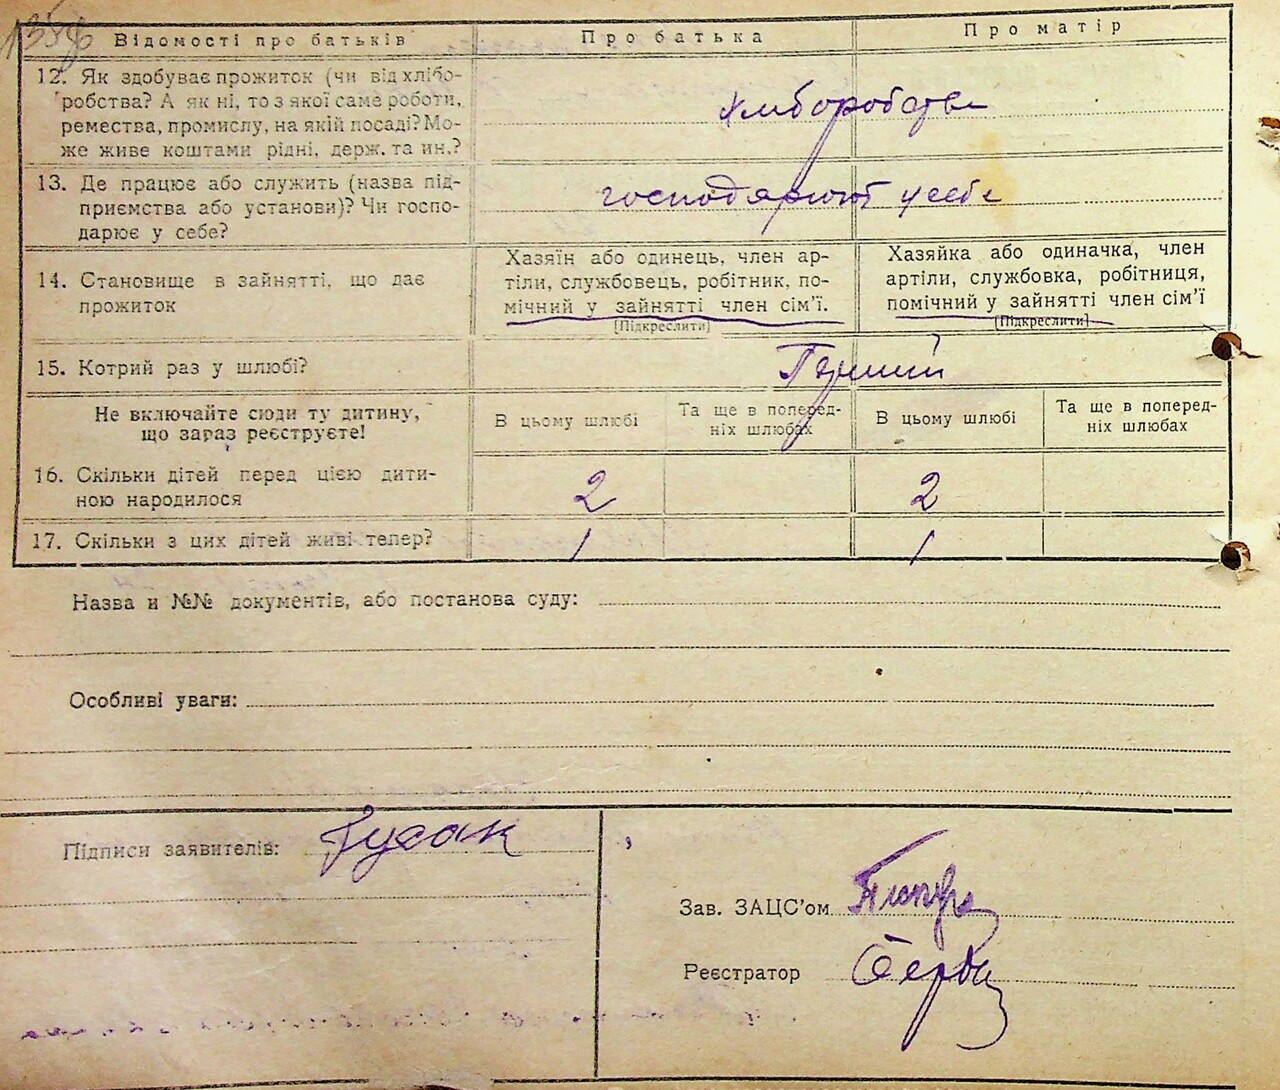 Відомості про батьків Про батька Про матір
12. Як здобуває прожиток (чи від хлібо-
робства? А як ні, то з якої саме роботи,
ремества, промислу, на якій посаді? Мо-
же живе коштами рідні, держ. та ин.?
хліборобство
13. Де працює або служить (назва під-
приємства або установи)? Чи госпо-
дарює у себе?
господарюют у себе
14. Становище в зайнятті, що дає
прожиток
Хазяїн або одинець, член ар-
тіли, службовець, робітник, по-
мічний у зайнятті член сім'ї.
[Підкреслити]
Хазяйка або одиначка, член
артіли, службовка, робітниця,
помічний у зайнятті член сім'ї
[Підкреслити]
15. Котрий раз у шлюбі?
Перший
Не включайте сюди ту дитину,
що зараз реєструєте!
В цьому шлюбі
Та ще в поперед-
ніх шлюбах
В цьому шлюбі
Та ще в поперед-
ніх шлюбах
16. Скільки дітей перед цією дити-
ною народилося
2 2
17. Скільки з цих дітей живі тепер?
1 1
Назва и №№ документів, або постанова суду:
Особливі уваги:
Підписи заявителів: Гусак
Зав. ЗАЦС'ом
Реєстратор